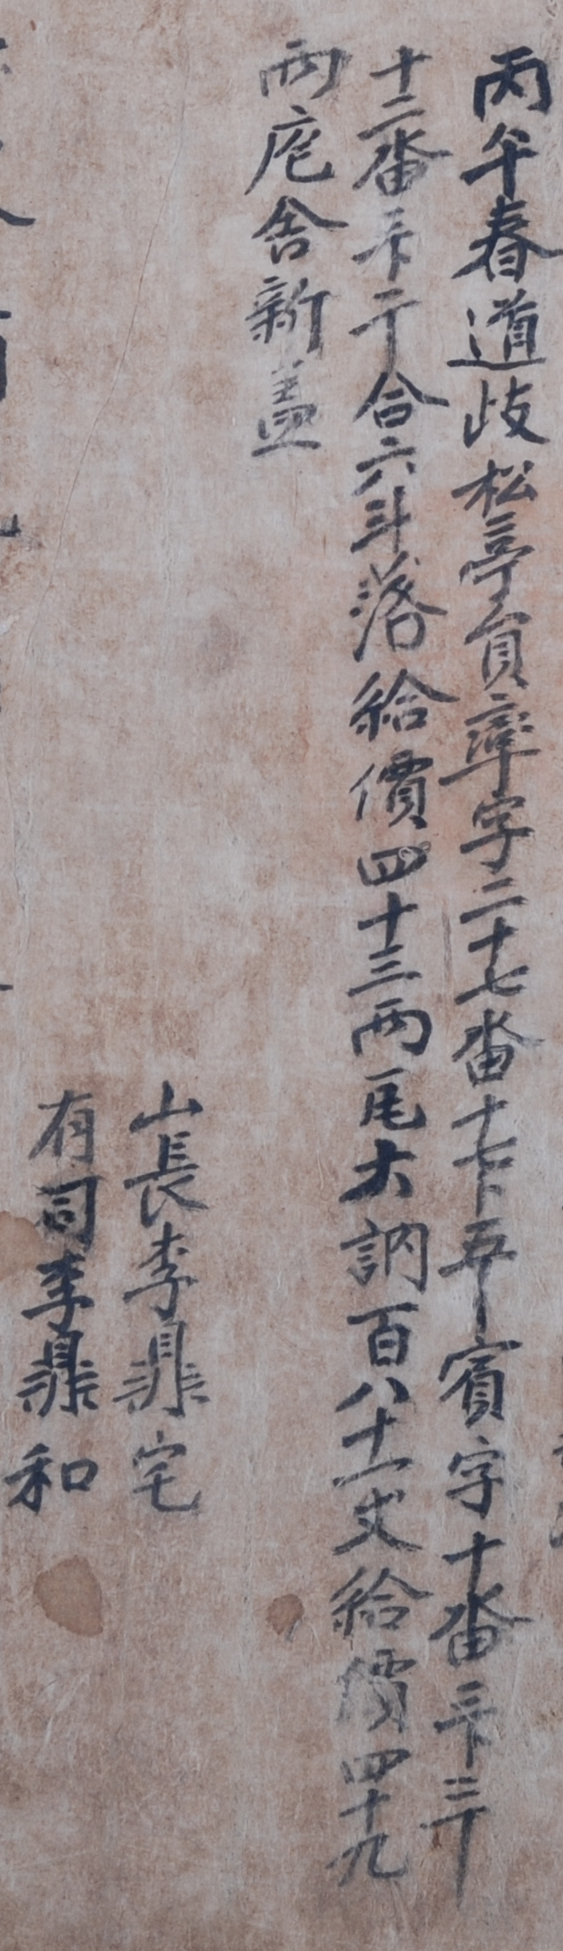 丙午春道歧松亭員率字二十七畓十七卜五束賓字十畓三卜三束
十二畓三卜二束合六斗落給價四十三兩瓦大訥百八十一丈給價四十九
兩庖舍新盖
山長李鼎宅
有司李鼎和